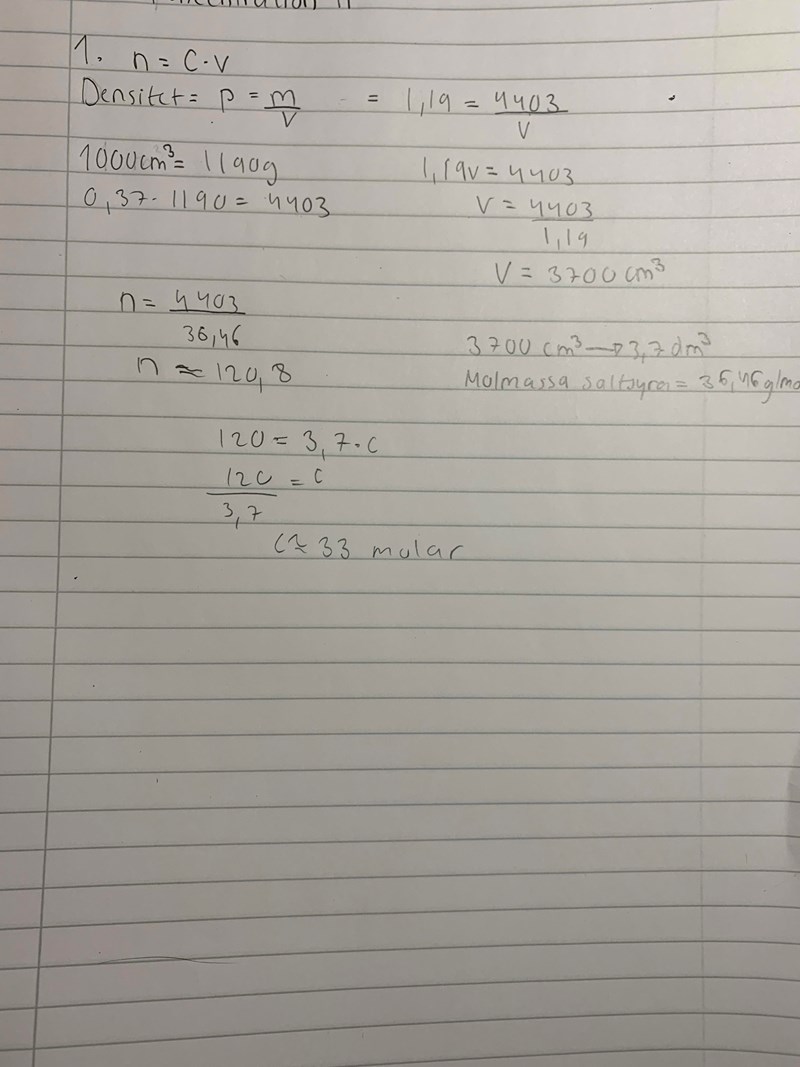 1. n = C·V
Densitet = p = m/V = 1,19 = 4403/V
1000cm³ = 1190g 1,19v = 4403
0,37·1190 = 4403 V = 4403/1,19
V = 3700 cm³
n = 4403/36,46
3700 cm³ → 3,7 dm³
n ≈ 120,8 Molmassa saltsyra = 36,46 g/mo
120 = 3,7·c
120/3,7 = c
C ≈ 33 molar